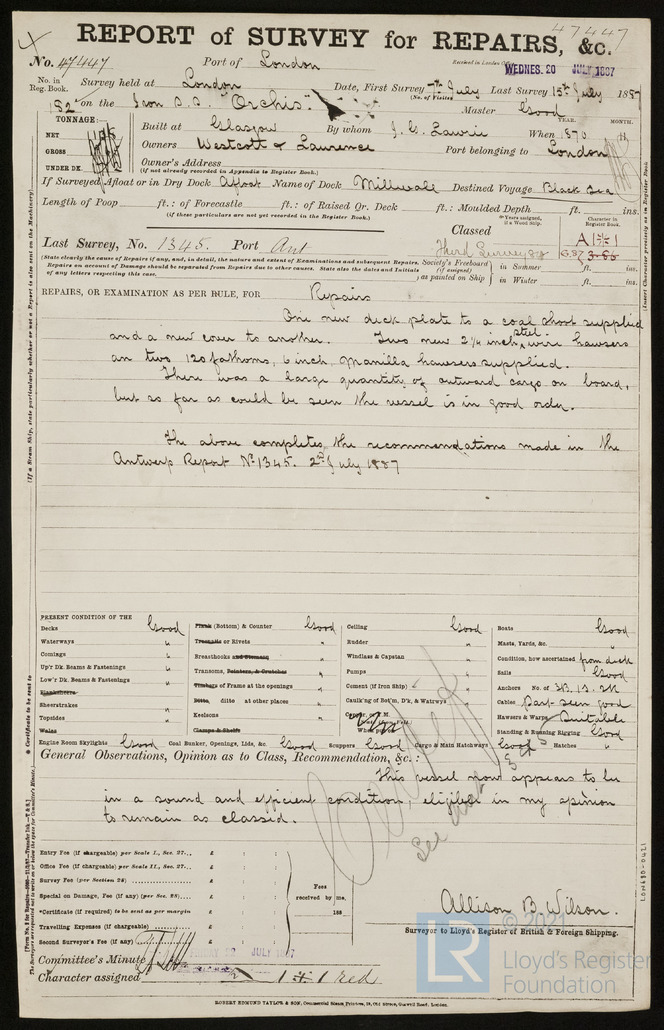 47447
REPORT of SURVEY for REPAIRS, &c.
No. 47447 Port of London
Received in London Office WEDNES. 20 JULY 1887
No. in Reg. Book. Survey held at London Date, First Survey 7th July Last Survey 15th July 1887
(No. of Visits)
182 on the Iron S.S. "Orchis" Master Good
TONNAGE: YEAR. MONTH.
Built at Glasgow By whom J. G. Lawrie When 1870
NET
GROSS
UNDER DK.
Owners Westcott & Laurence Port belonging to London
Owner's Address
(If not already recorded in Appendix to Register Book.)
If Surveyed Afloat or in Dry Dock Afloat Name of Dock Millwall Destined Voyage Black Sea
Length of Poop ft.: of Forecastle ft.: of Raised Qr. Deck ft.: Moulded Depth ft. ins.
(if these particulars are not yet recorded in the Register Book.)
Years assigned, if a Wood Ship. Character in Register Book.
Classed
Last Survey, No. 1345. Port Ant
A1
3.86
(State clearly the cause of Repairs if any, and, in detail, the nature and extent of Examinations and subsequent Repairs.
Repairs on account of Damage should be separated from Repairs due to other causes. State also the dates and Initials
of any letters respecting this case.
Society's Freeboard (if assigned) as painted on Ship in Summer ft. ins.
in Winter ft. ins.
REPAIRS, OR EXAMINATION AS PER RULE, FOR Repairs
One new deck plate to a coal shoot supplied
and a new cover to another. Two new 2¼ inch steel wire hawsers
an two 120 fathoms, 6 inch, manilla hawsers supplied.
There was a large quantity of outward cargo on board,
but so far as could be seen the vessel is in good order.
The above completes the recommendations made in the
Antwerp Report No 1345. 2nd July 1887
PRESENT CONDITION OF THE
Decks Good
Waterways "
Comings "
Up'r Dk. Beams & Fastenings "
Low'r Dk. Beams & Fastenings "
Planksheers
Sheerstrakes "
Topsides "
Wales
Plank (Bottom) & Counter Good
Treenails or Rivets "
Breasthooks and Stemson "
Transoms, Pointers, & Crutches "
Timbers of Frame at the openings "
Ditto ditto at other places "
Keelsons "
Clamps & Shelfs
Ceiling Good
Rudder "
Windlass & Capstan "
Pumps "
Cement (if Iron Ship) "
Caulk'ng of Bot'm, D'k, & Watrwys "
Copper, or Y.M.
Boats Good
Masts, Yards, &c. "
Condition, how ascertained from deck
Sails Good
Anchors No. of 3B. 1S. 2K
Cables Part seen good
Hawsers & Warps Suitable
Standing & Running Rigging Good
Engine Room Skylights Good Coal Bunker, Openings, Lids, &c. Good Scuppers Good Cargo & Main Hatchways Good Hatches "
General Observations, Opinion as to Class, Recommendation, &c.:
This vessel now appears to be
in a sound and efficient condition, eligible in my opinion
to remain as classed.
Entry Fee (if chargeable) per Scale I., Sec. 27... £ : :
Office Fee (if chargeable) per Scale II., Sec. 27... £ : :
Survey Fee (per Section 28) £ : :
Special on Damage, Fee (if any) (per Sec. 28) £ : :
*Certificate (if required) to be sent as per margin £ : :
Travelling Expenses (if chargeable) £ : :
Second Surveyor's Fee (if any) £ : :
Fees received by me,
188
Allison B. Wilson.
Surveyor to Lloyd's Register of British & Foreign Shipping.
Committee's Minute FRIDAY 22 JULY 1887
Character assigned 1 red
ROBERT EDMUND TAYLOR & SON, Commercial Steam Printers, 19, Old Street, Goswell Road, London.
LR
© 2021
Lloyd's Register
Foundation